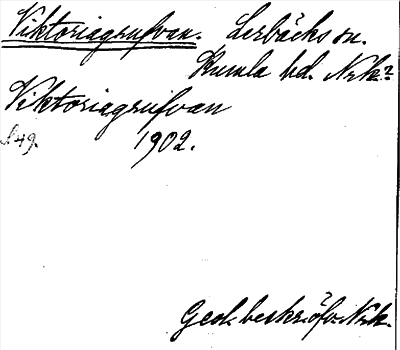 Viktoriagrufvan. Lerbäcks sn.
Kumla hd. Nrk.?
Viktoriagrufvan
s. 49. 1902.
Geol. beskr. öfv. Nrk.